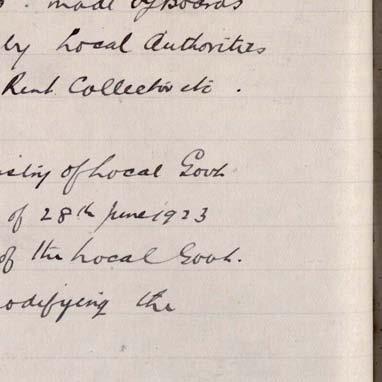 made by Boards
by Local Authorities
Rent Collector etc .
istry of Local Govt
of 28th June 1923
of the Local Govt.
odifying the